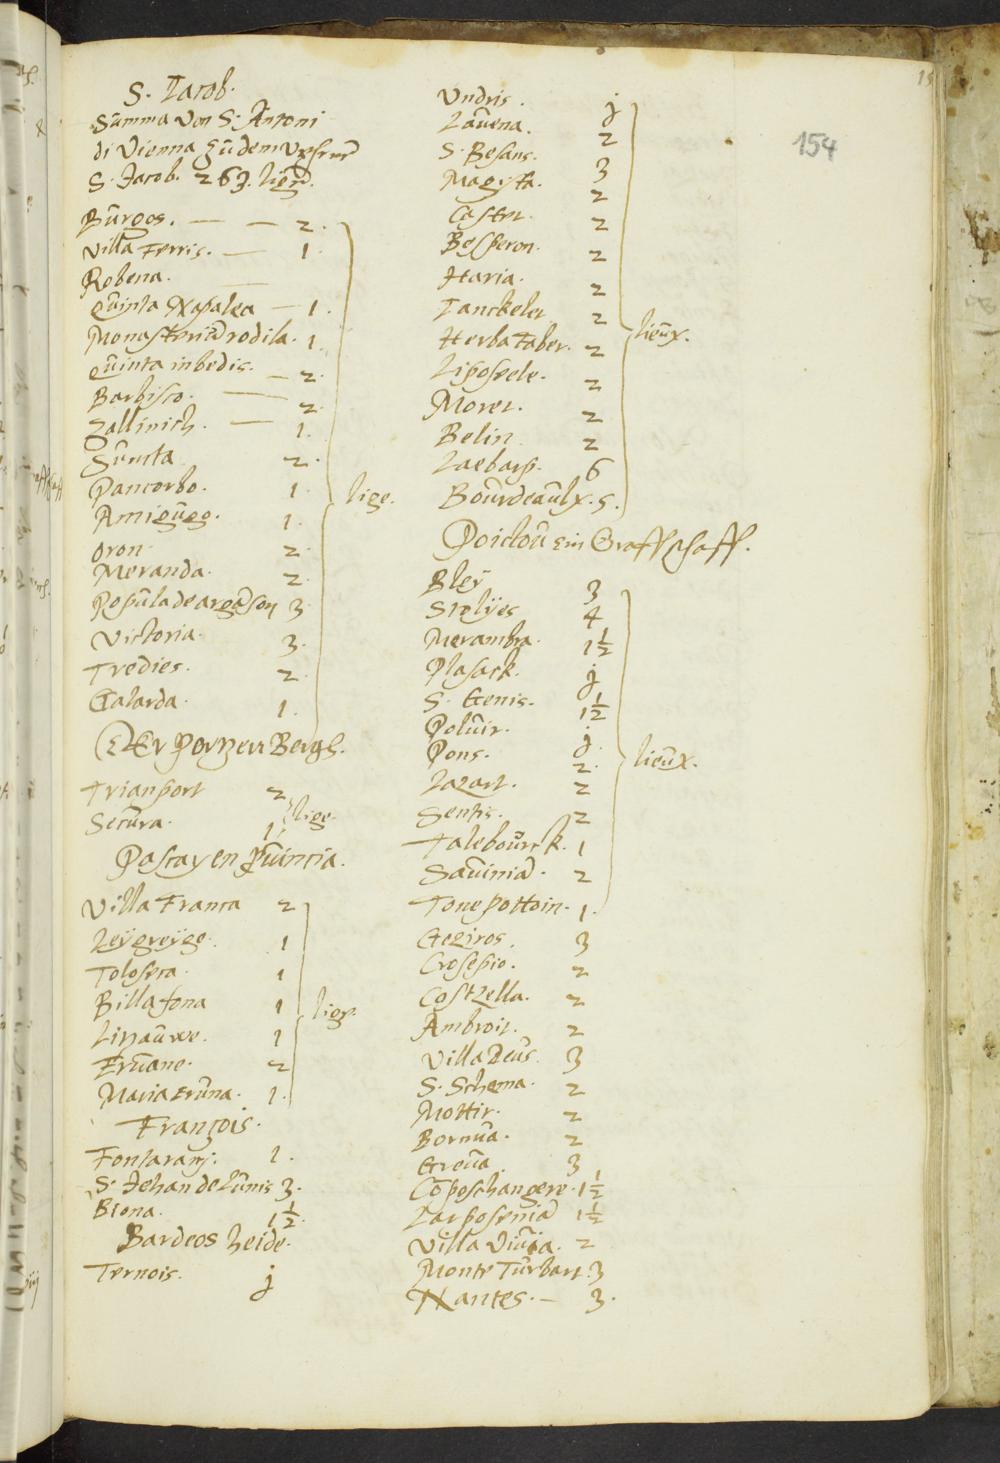 S. Jacob.
Summa von S. Antoni
di Vienna zu dem
S. Jacob. 263. lige.
Burgos. — — 2.
Villa Ferris. — 1.
Robena.
Quinta Napalea — 1.
Monasterio rodila. 1.
Quinta inbedis. — 2.
Barbisco. — 2.
Zallinich. — 1.
Sumta 2.
Pancorbo. 1.
Amigugo. 1.
Oron 2.
Meranda. 2.
Popula de argason 3.
Victoria. 3.
Tredies. 2.
Galarda. 1.
lige.
Der Bergh.
Trianport 2
Secura. 1.
lige.
Pascay en Puincia.
Villa Franca 2
Leygreyge. 1
Tolosera. 1
Billafona 1
Linauwe. 1
Eruane. 2
Maria Eruna. 1.
lige.
François.
Fontarany. 1.
S. Jehan de Lunis 3.
Biona. 1½.
Bardeos heide.
Ternois. j
Undris. j
Lauena. 2
S. Besans. 3
Magista. 2
Caster. 2
Besperon. 2
Haria. 2
Tanckeler 2
Herba Faber. 2
Liposrele. 2
Moret. 2
Belin 2
Laebarp. 6
Bourdeaulx. 5.
lieux.
Poictou ein Graffschafft.
Bley 3
Stelijes 4
Merambra. 1½
Plasack. j
S. Genis. 1½
Poluir. j.
Pons. 2.
Lazart. 2
Sentis. 2
Talebourck. 1
Sauinia. 2
Tonepottoin. 1.
lieux.
Gegiros. 3
Crosepio. 2
Costzella. 2
Ambroit. 2
Villa Deus. 3
S. Schema. 2
Mottir. 2
Bornua. 2
Greua. 3
Coposchangere. 1½
Larposenia 1½
Villa Viuia. 2
Monte Turbart. 3
Nantes. — 3.
154